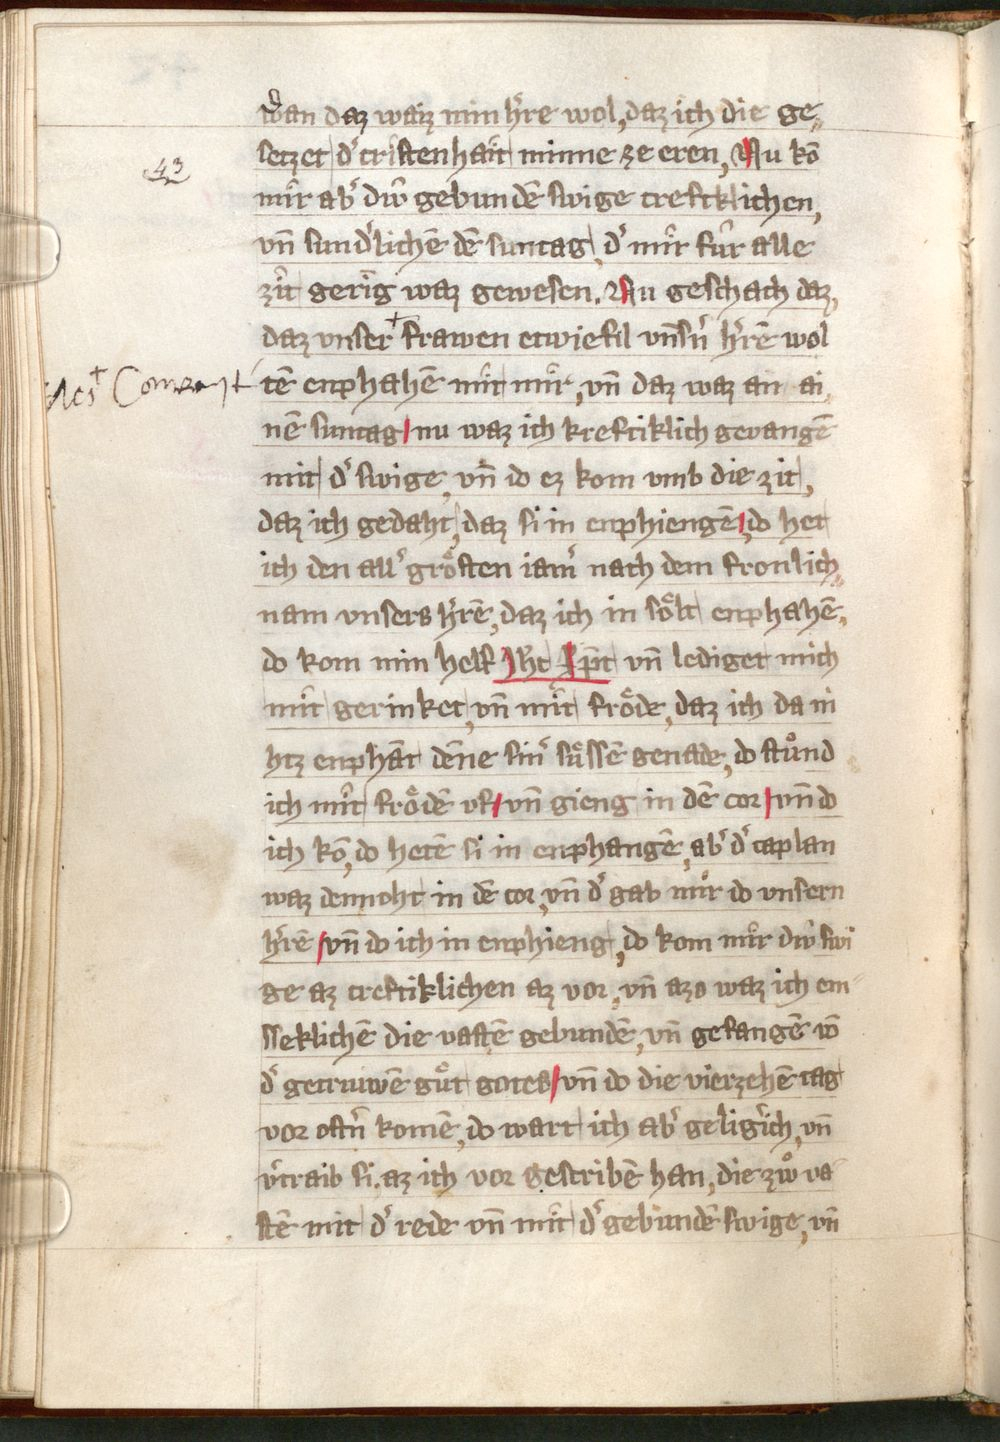 wan daz waiz min hˢre wol, daz ich die ge⸗
setzet dˢ cristenhait minne ze eren, Nu kō
mir abˢ diu̍ gebundē swige creftklichen,
vn̄ sundˢlichē dē suntag, dˢ mir fu̍r alle
zit gerig waz gewesen. Nu geschach daz,
daz vnser⁺ frawen etwiefil vn̄sˢn hˢrē wol
43
tē enphahē mit mir, vn̄ daz waz an ai
⁺ Conuent
nē suntag / nu waz ich kreftiklich gevangē
mit dˢ swige, vn̄ do ez kom vmb die zit,
daz ich gedaht, daz si in enphiengē / do het
ich den allˢ grösten iamˢ nach dem fronlich⸗
nam vnsers hˢrē, daz ich in sölt enphahē,
do kom min helf Jhc xp̄c vn̄ lediget mich
mit gerinket, vn̄ mit fröde, daz ich da in
htz enphāt dēne sinˢ süssē genade, do stůnd
ich mit frödē vf / vn̄ gieng in dē cor / vn̄ do
ich kō, do hetē si in enphangē, abˢ dˢ caplan
waz dennoht in dē cor, vn̄ dˢ gab mir do vnsern
hˢrē / vn̄ do ich in enphieng, do kom mir diu̍ swi
ge az creftiklichen az vor, vn̄ azo waz ich em
sseklichē die vastē gebundē, vn̄ gefangē vō
dˢ getruwē gu̍t gotes / vn̄ do die vierzehē tag
vor ostˢn komē, do wart ich abˢ geligˢich, vn̄
vˢtraib si, az ich vor gescribē han, die zwo va
stē mit dˢ rede vn̄ mit dˢ gebundē swige, vn̄